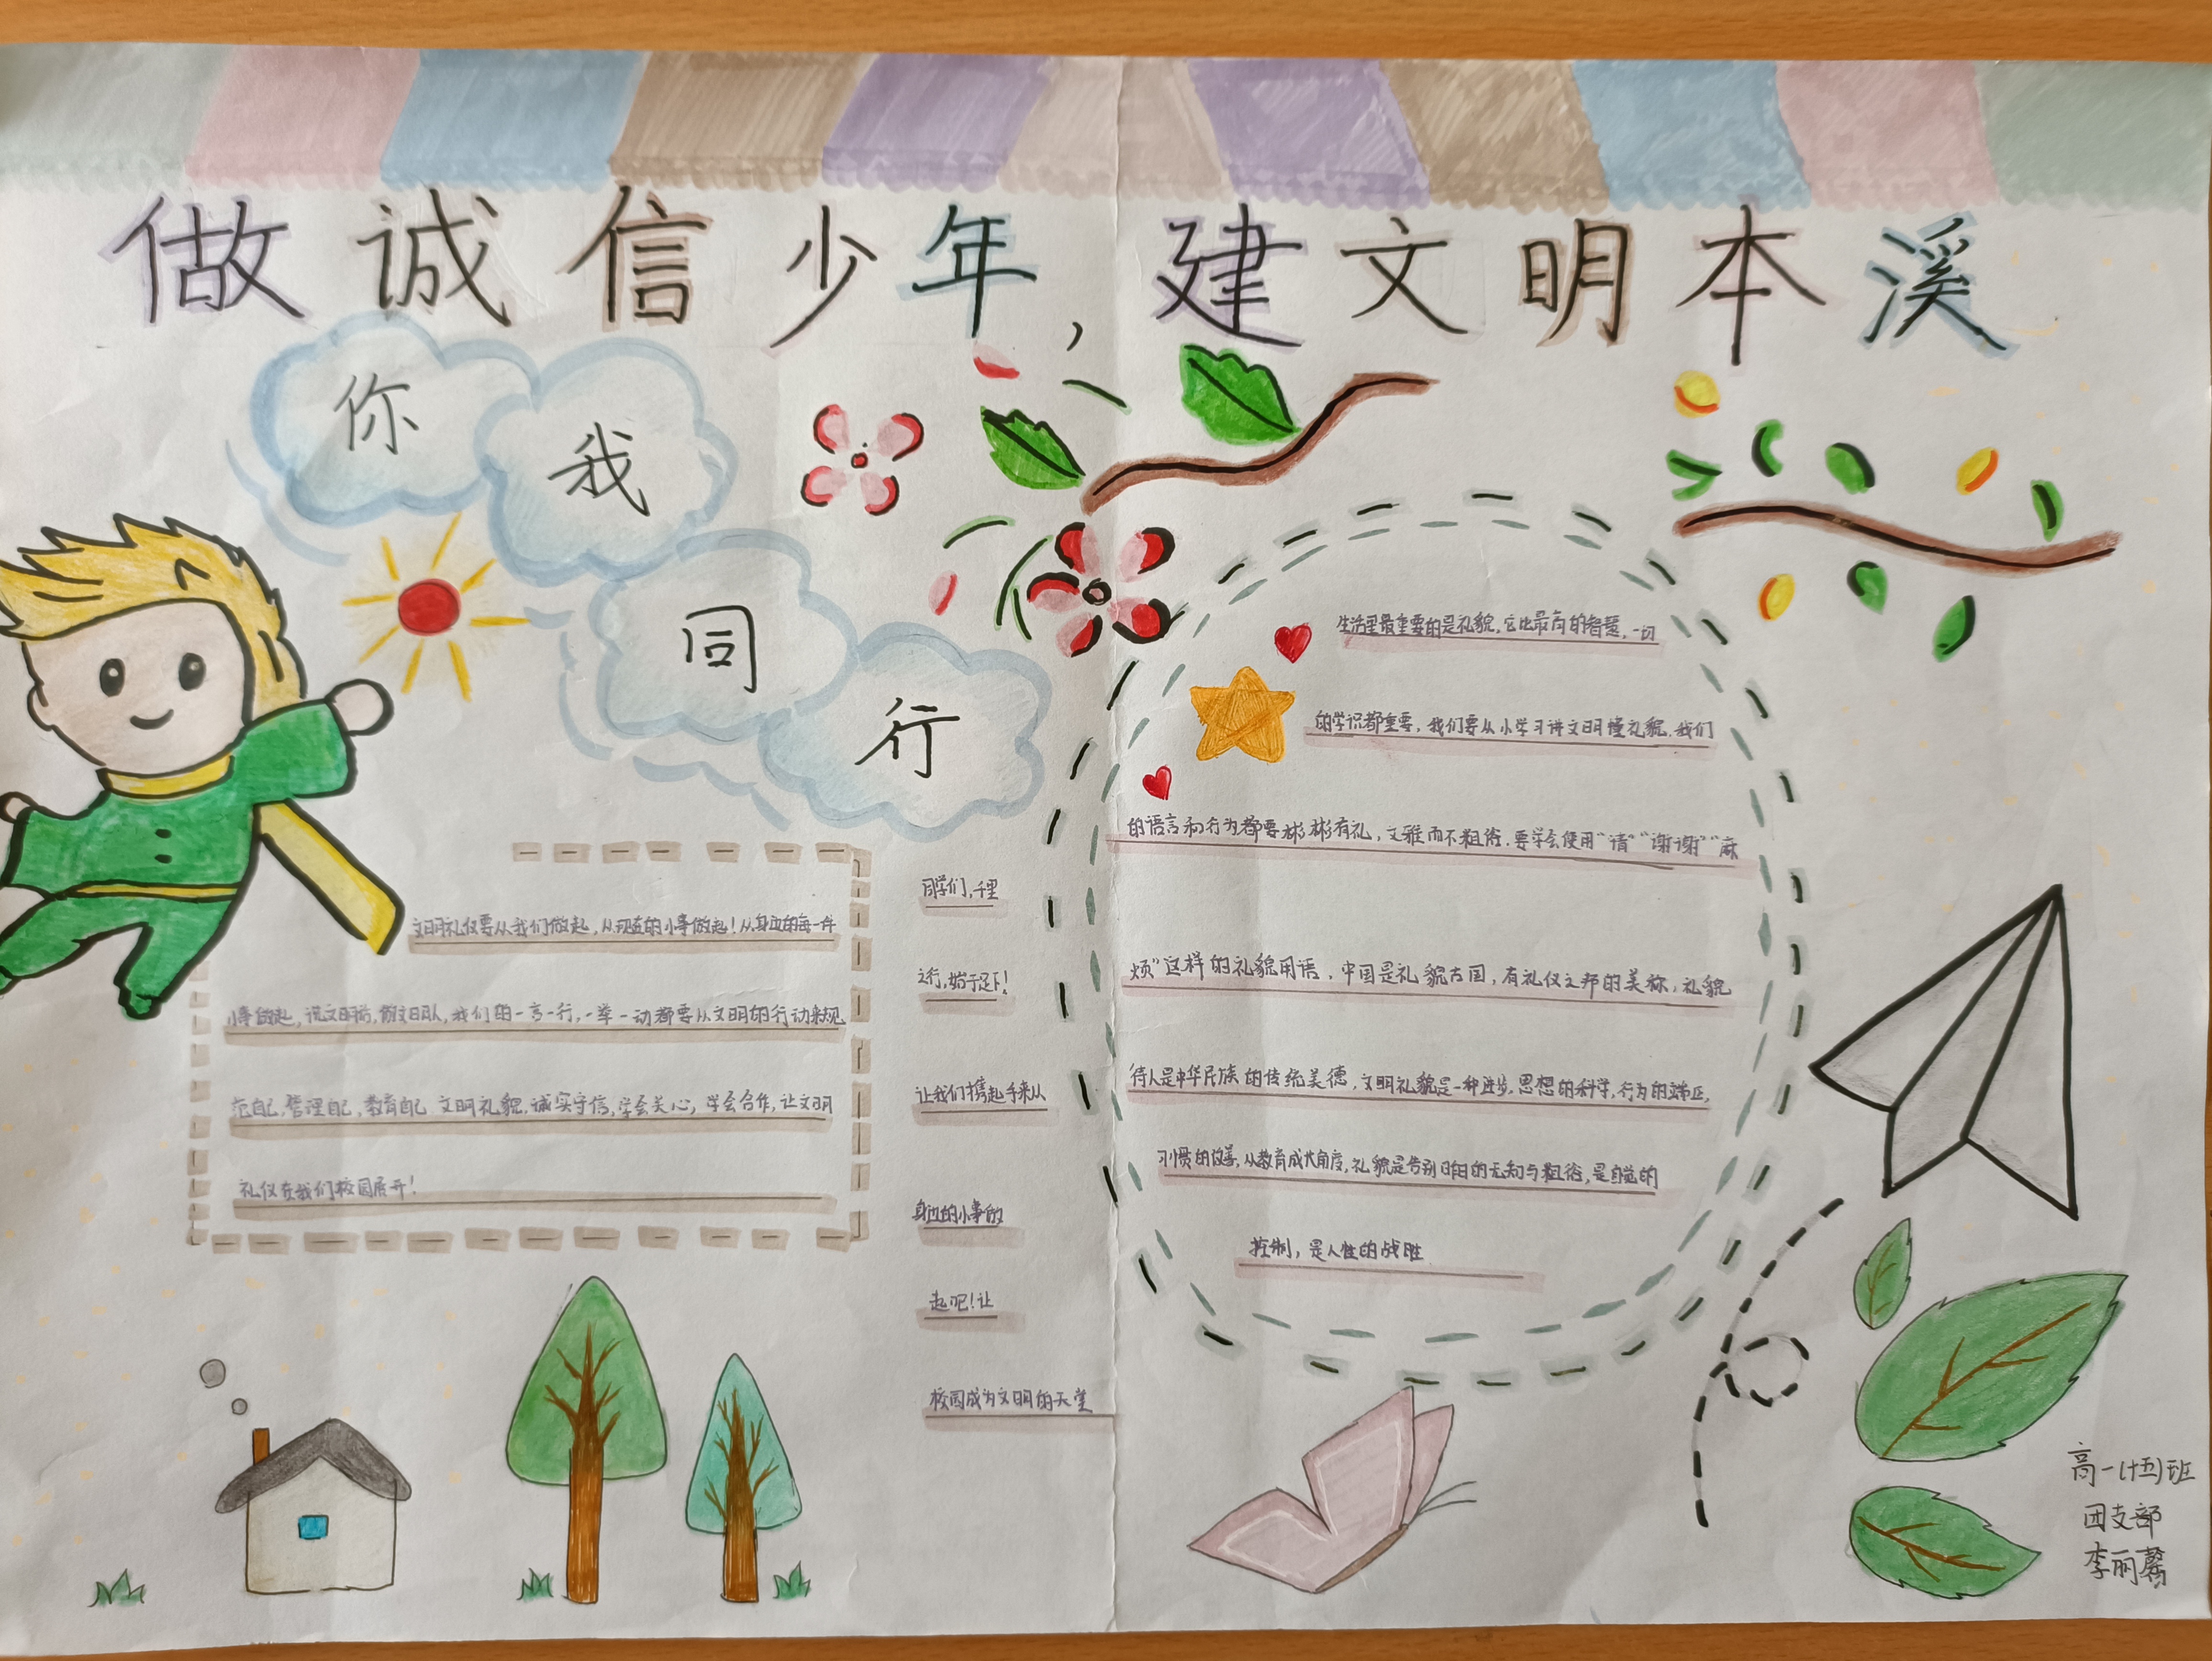 做诚信少年，建文明本溪
你
我
同
行
文明礼仪要从我们做起，从现在的小事做起！从身边的每一件
小事做起，说文明话，做文明人，我们的一言一行，一举一动都要从文明的行动来规
范自己，管理自己，教育自己 文明礼貌，诚实守信，学会关心，学会合作，让文明
礼仪在我们校园展开！
同学们，千里
之行，始于足下！
让我们携起手来从
身边的小事做
起吧！让
校园成为文明的天堂
生活里最重要的是礼貌，它比最高的智慧，一切
的学识都重要，我们要从小学习讲文明懂礼貌，我们
的语言和行为都要彬彬有礼，文雅而不粗俗，要学会使用“请”“谢谢”“麻
烦”这样的礼貌用语，中国是礼貌古国，有礼仪之邦的美称，礼貌
待人是中华民族的传统美德，文明礼貌是一种进步，思想的科学，行为的端正，
习惯的改善，从教育成长角度，礼貌是告别昨日的无知与粗俗，是自觉的
控制，是人性的战胜
高一(十五)班
团支部
李丽馨